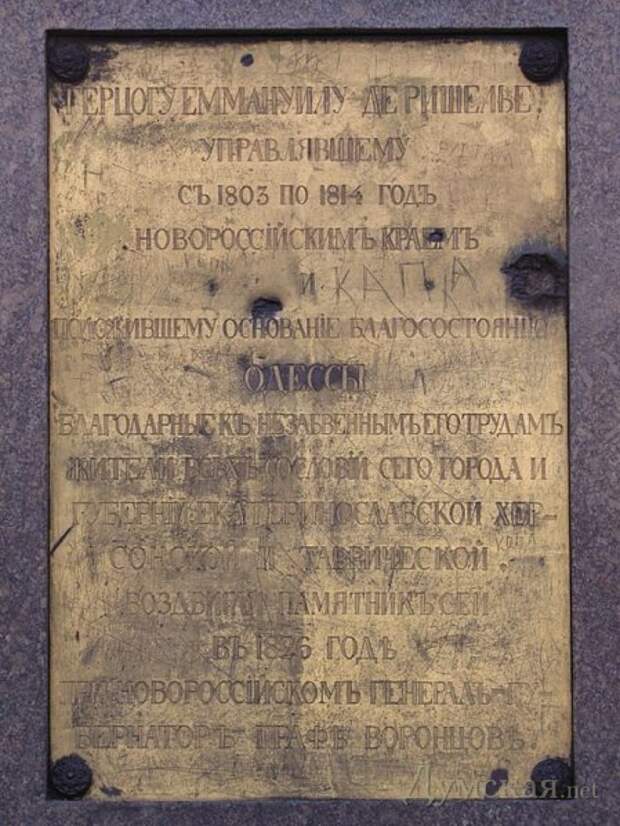 ГЕРЦОГУ ЕММАНУИЛУ ДЕ РИШЕЛЬЕ
УПРАВЛЯВШЕМУ
СЪ 1803 ПО 1814 ГОДЪ
НОВОРОССІЙСКИМЪ КРАЕМЪ
И КАПКА
ПОЛОЖИВШЕМУ ОСНОВАНІЕ БЛАГОСОСТОЯНІЮ
ОДЕССЫ
БЛАГОДАРНЫЕ КЪ НЕЗАБВЕННЫМЪ ЕГО ТРУДАМЪ
ЖИТЕЛИ ВСѢХЪ СОСЛОВІЙ СЕГО ГОРОДА И
ГУБЕРНІЙ ЕКАТЕРИНОСЛАВСКОЙ ХЕР-
СОНСКОЙ И ТАВРИЧЕСКОЙ
ВОЗДВИГЛИ ПАМЯТНИКЪ СЕЙ
ВЪ 1826 ГОДѢ
ПРИ НОВОРОССІЙСКОМЪ ГЕНЕРАЛЪ-ГУ-
БЕРНАТОРѢ ГРАФѢ ВОРОНЦОВѢ.
Думская.net